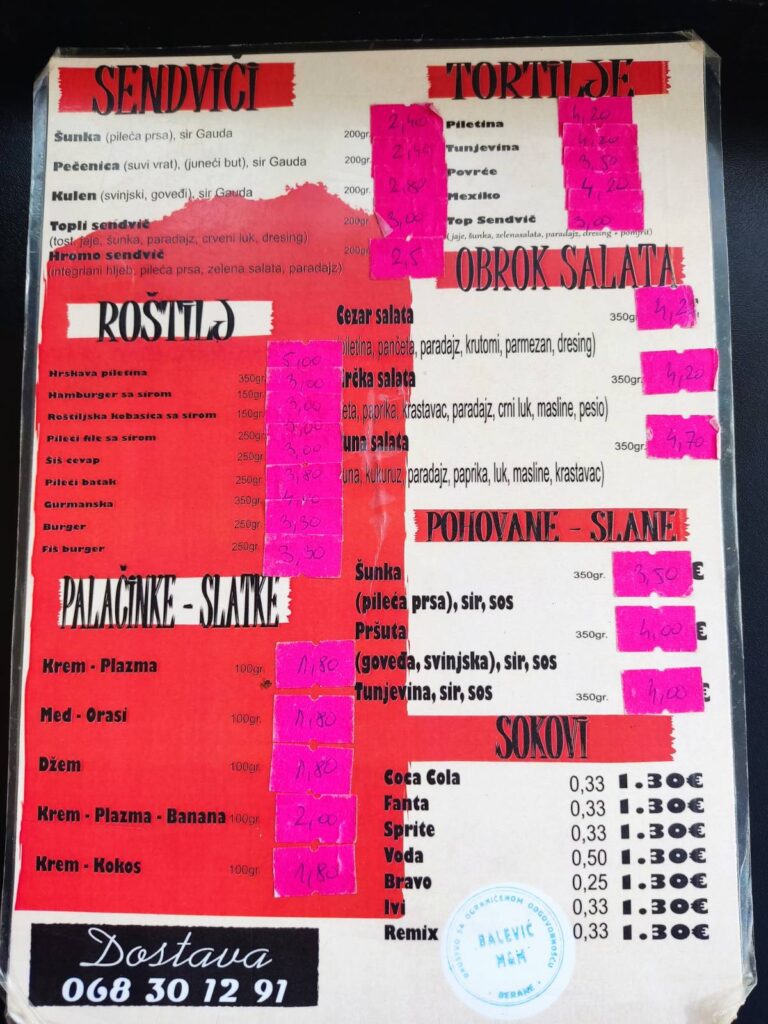 SENDVIČI
Šunka (pileća prsa), sir Gauda 200gr. 2,40
Pečenica (suvi vrat), (juneći but), sir Gauda 200gr. 2,40
Kulen (svinjski, goveđi), sir Gauda 200gr. 2,80
Topli sendvič 200gr. 3,00
(tost, jaje, šunka, paradajz, crveni luk, dresing)
Hromo sendvič 200gr 2,5
(integrlani hljeb, pileća prsa, zelena salata, paradajz)
ROŠTILJ
Hrskava piletina 350gr. 5,00
Hamburger sa sirom 150gr. 3,00
Roštiljska kobasica sa sirom 150gr. 3,00
Pileći file sa sirom 250gr.
Šiš ćevap 250gr. 3,00
Pileći batak 250gr. 3,80
Gurmanska 350gr.
Burger 250gr. 3,30
Fiš burger 250gr. 3,50
PALAČINKE - SLATKE
Krem - Plazma 100gr. 1,80
Med - Orasi 100gr. 1,80
Džem 100gr. 1,80
Krem - Plazma - Banana 100gr. 2,00
Krem - Kokos 100gr. 1,80
Dostava
068 30 12 91
TORTILJE
Piletina 4,20
Tunjevina 4,20
Povrće 3,50
Mexiko 4,20
Top Sendvič 3,00
(jaje, šunka, zelenasalata, paradajz, dresing + pomfrit)
OBROK SALATA
Cezar salata 350gr. 4,20
piletina, pančeta, paradajz, krutomi, parmezan, dresing)
rčka salata 350gr. 4,20
eta, paprika, krastavac, paradajz, crni luk, masline, pesio)
una salata 350gr. 4,70
una, kukuruz, paradajz, paprika, luk, masline, krastavac)
POHOVANE - SLANE
Šunka 350gr. 3,50 €
(pileća prsa), sir, sos
Pršuta 350gr. 4,00 €
(goveđa, svinjska), sir, sos
Tunjevina, sir, sos 350gr. 4,00 €
SOKOVI
Coca Cola 0,33 1.30€
Fanta 0,33 1.30€
Sprite 0,33 1.30€
Voda 0,50 1.30€
Bravo 0,25 1.30€
Ivi 0,33 1.30€
Remix 0,33 1.30€
DRUŠTVO SA OGRANIČENOM ODGOVORNOŠĆU
BALEVIĆ
M&M
BERANE